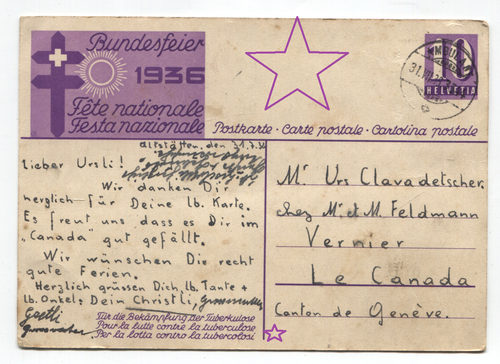 Bundesfeier
1936
Fête nationale
Festa nazionale
Postkarte · Carte postale · Cartolina postale
10
HELVETIA
Altstätten, den 31.7.36
Lieber Ursli!
Wir danken Dir
herzlich für Deine lb. Karte.
Es freut uns dass es Dir im
"Canada" gut gefällt.
Wir wünschen Dir recht
gute Ferien.
Herzlich grüssen Dich, lb. Tante +
lb. Onkel: Dein Christli, Grossmutter
Goetti
Grossvater
Für die Bekämpfung der Tuberkulose
Pour la lutte contre la tuberculose
Per la lotta contro la tubercolosi
Mr Urs Clavadetscher.
chez Mr et M. Feldmann
Vernier
Le Canada
Canton de Genève.